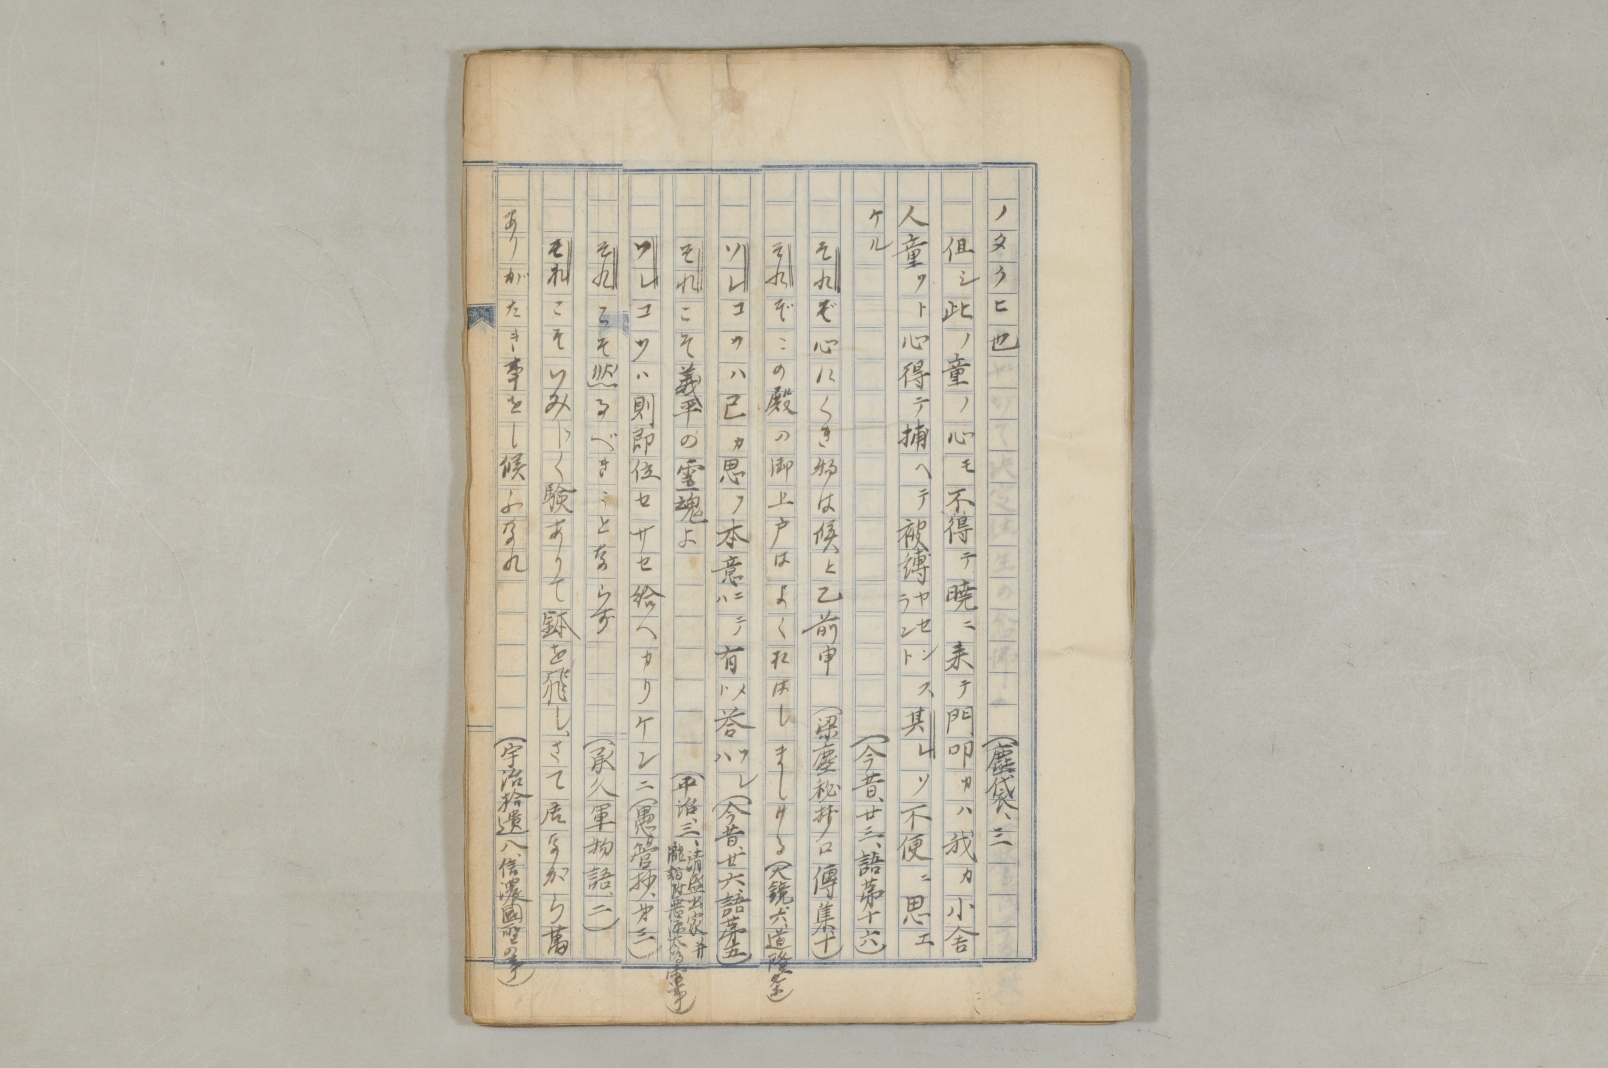 ノタクヒ也　（塵袋、三
但シ此ノ童ノ心モ不得テ暁ニ来テ門叩カハ我カ小舎
人童ソト心得テ捕ヘテ被縛ラヤセンントス其レソ不便ニ思エ
ケル　（今昔、廿三、語第十六）
それぞ心にくき物は候と乙前申　（梁塵秘抄口傳集十）
それぞこの殿の御上戸はよくおはしましける（大鏡六、道隆条）
ソレコソハ己カ思フ本意ニハテ有メ答フレハ（今昔、廿六、語第五）
それこそ義平の霊魂よ　（平治、三、清盛出家并瀧詣付悪源太為雷事）
ソレコソハ則即位セサセ給ヘカリケンニ（愚管抄、第三）
それこそ然るべきことならず　（承久軍物語、二）
それこそいみじく験ありて鉢を飛し、さて居ながら萬
ありがたき事をし候ふなれ　（宇治拾遺八、信濃國聖の事）